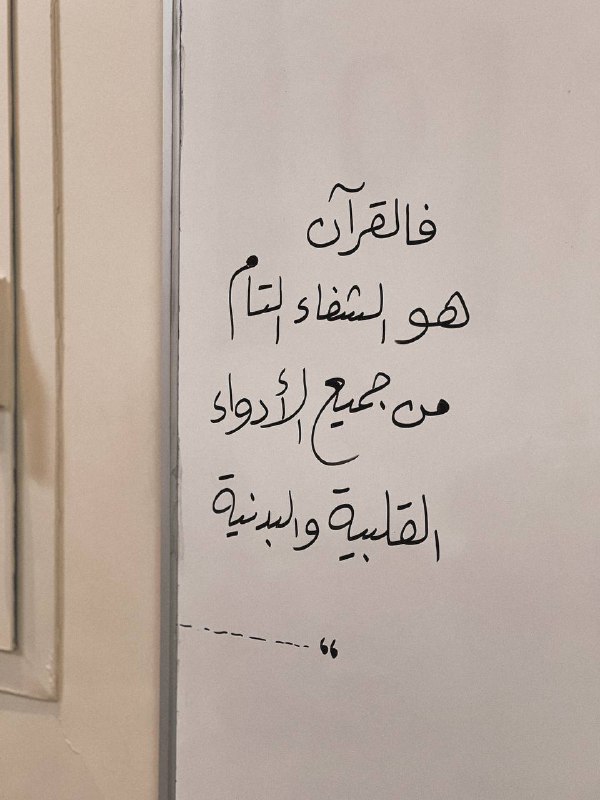 فالقرآن
هو الشفاء التام
من جميع الأدواء
القلبية والبدنية
“